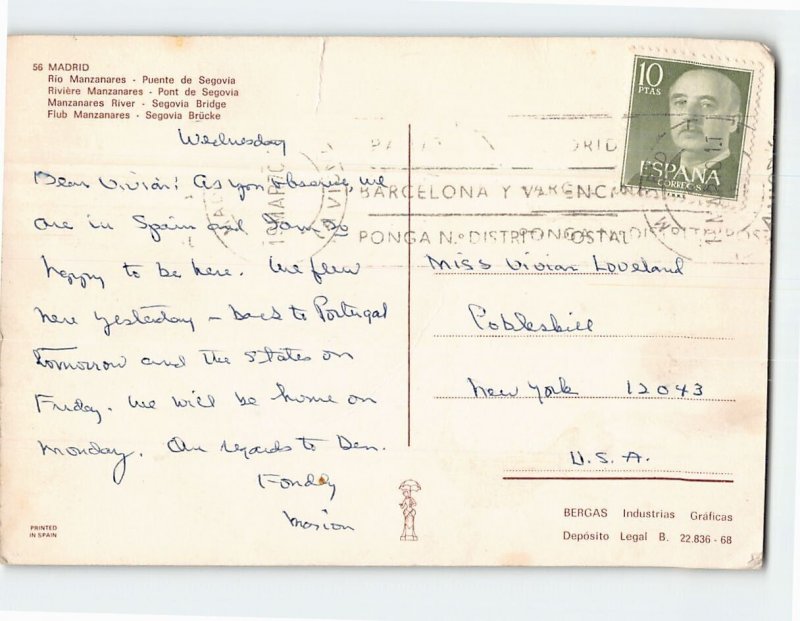 56 MADRID
Río Manzanares - Puente de Segovia
Rivière Manzanares - Pont de Segovia
Manzanares River - Segovia Bridge
Flub Manzanares - Segovia Brücke
Wednesday
Dear Vivian: As you observe, we
are in Spain and I am so
happy to be here. We flew
here yesterday – back to Portugal
tomorrow and the States on
Friday. We will be home on
Monday. Our regards to Den.
Fondly
Marion
PRINTED
IN SPAIN
10
PTAS
ESPAÑA
CORREOS
BARCELONA Y VALENCIA
PONGA N.º DISTRITO POSTAL
Miss Vivian Loveland
Cobleskill
New York 12043
U.S.A.
BERGAS Industrias Gráficas
Depósito Legal B. 22.836 - 68